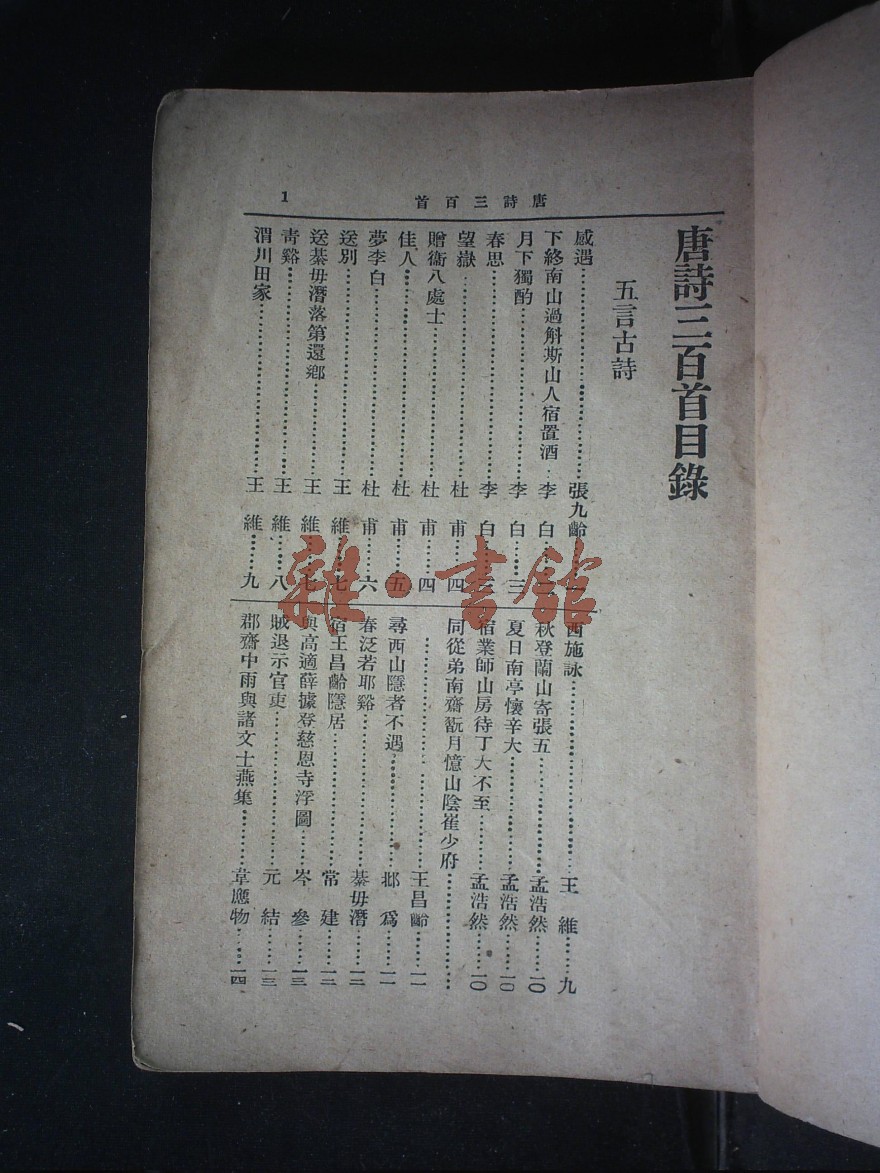 唐詩三百首
1
唐詩三百首目錄
五言古詩
感遇……張九齡……一
下終南山過斛斯山人宿置酒…李白……二
月下獨酌……李白……三
春思……李白……三
望嶽……杜甫……四
贈衞八處士……杜甫……四
佳人……杜甫……五
夢李白……杜甫……六
送別……王維……七
送綦毋潛落第還鄉……王維……七
靑谿……王維……八
渭川田家……王維……九
西施詠……王維……九
秋登蘭山寄張五……孟浩然……一〇
夏日南亭懷辛大……孟浩然……一〇
宿業師山房待丁大不至……孟浩然……一〇
同從弟南齋翫月憶山陰崔少府……
……王昌齡……一一
尋西山隱者不遇……邱爲……一一
春泛若耶谿……綦毋潛……一二
宿王昌齡隱居……常建……一二
與高適薛據登慈恩寺浮圖……岑參……一三
賊退示官吏……元結……一三
郡齋中雨與諸文士燕集……韋應物……一四
雜·書館